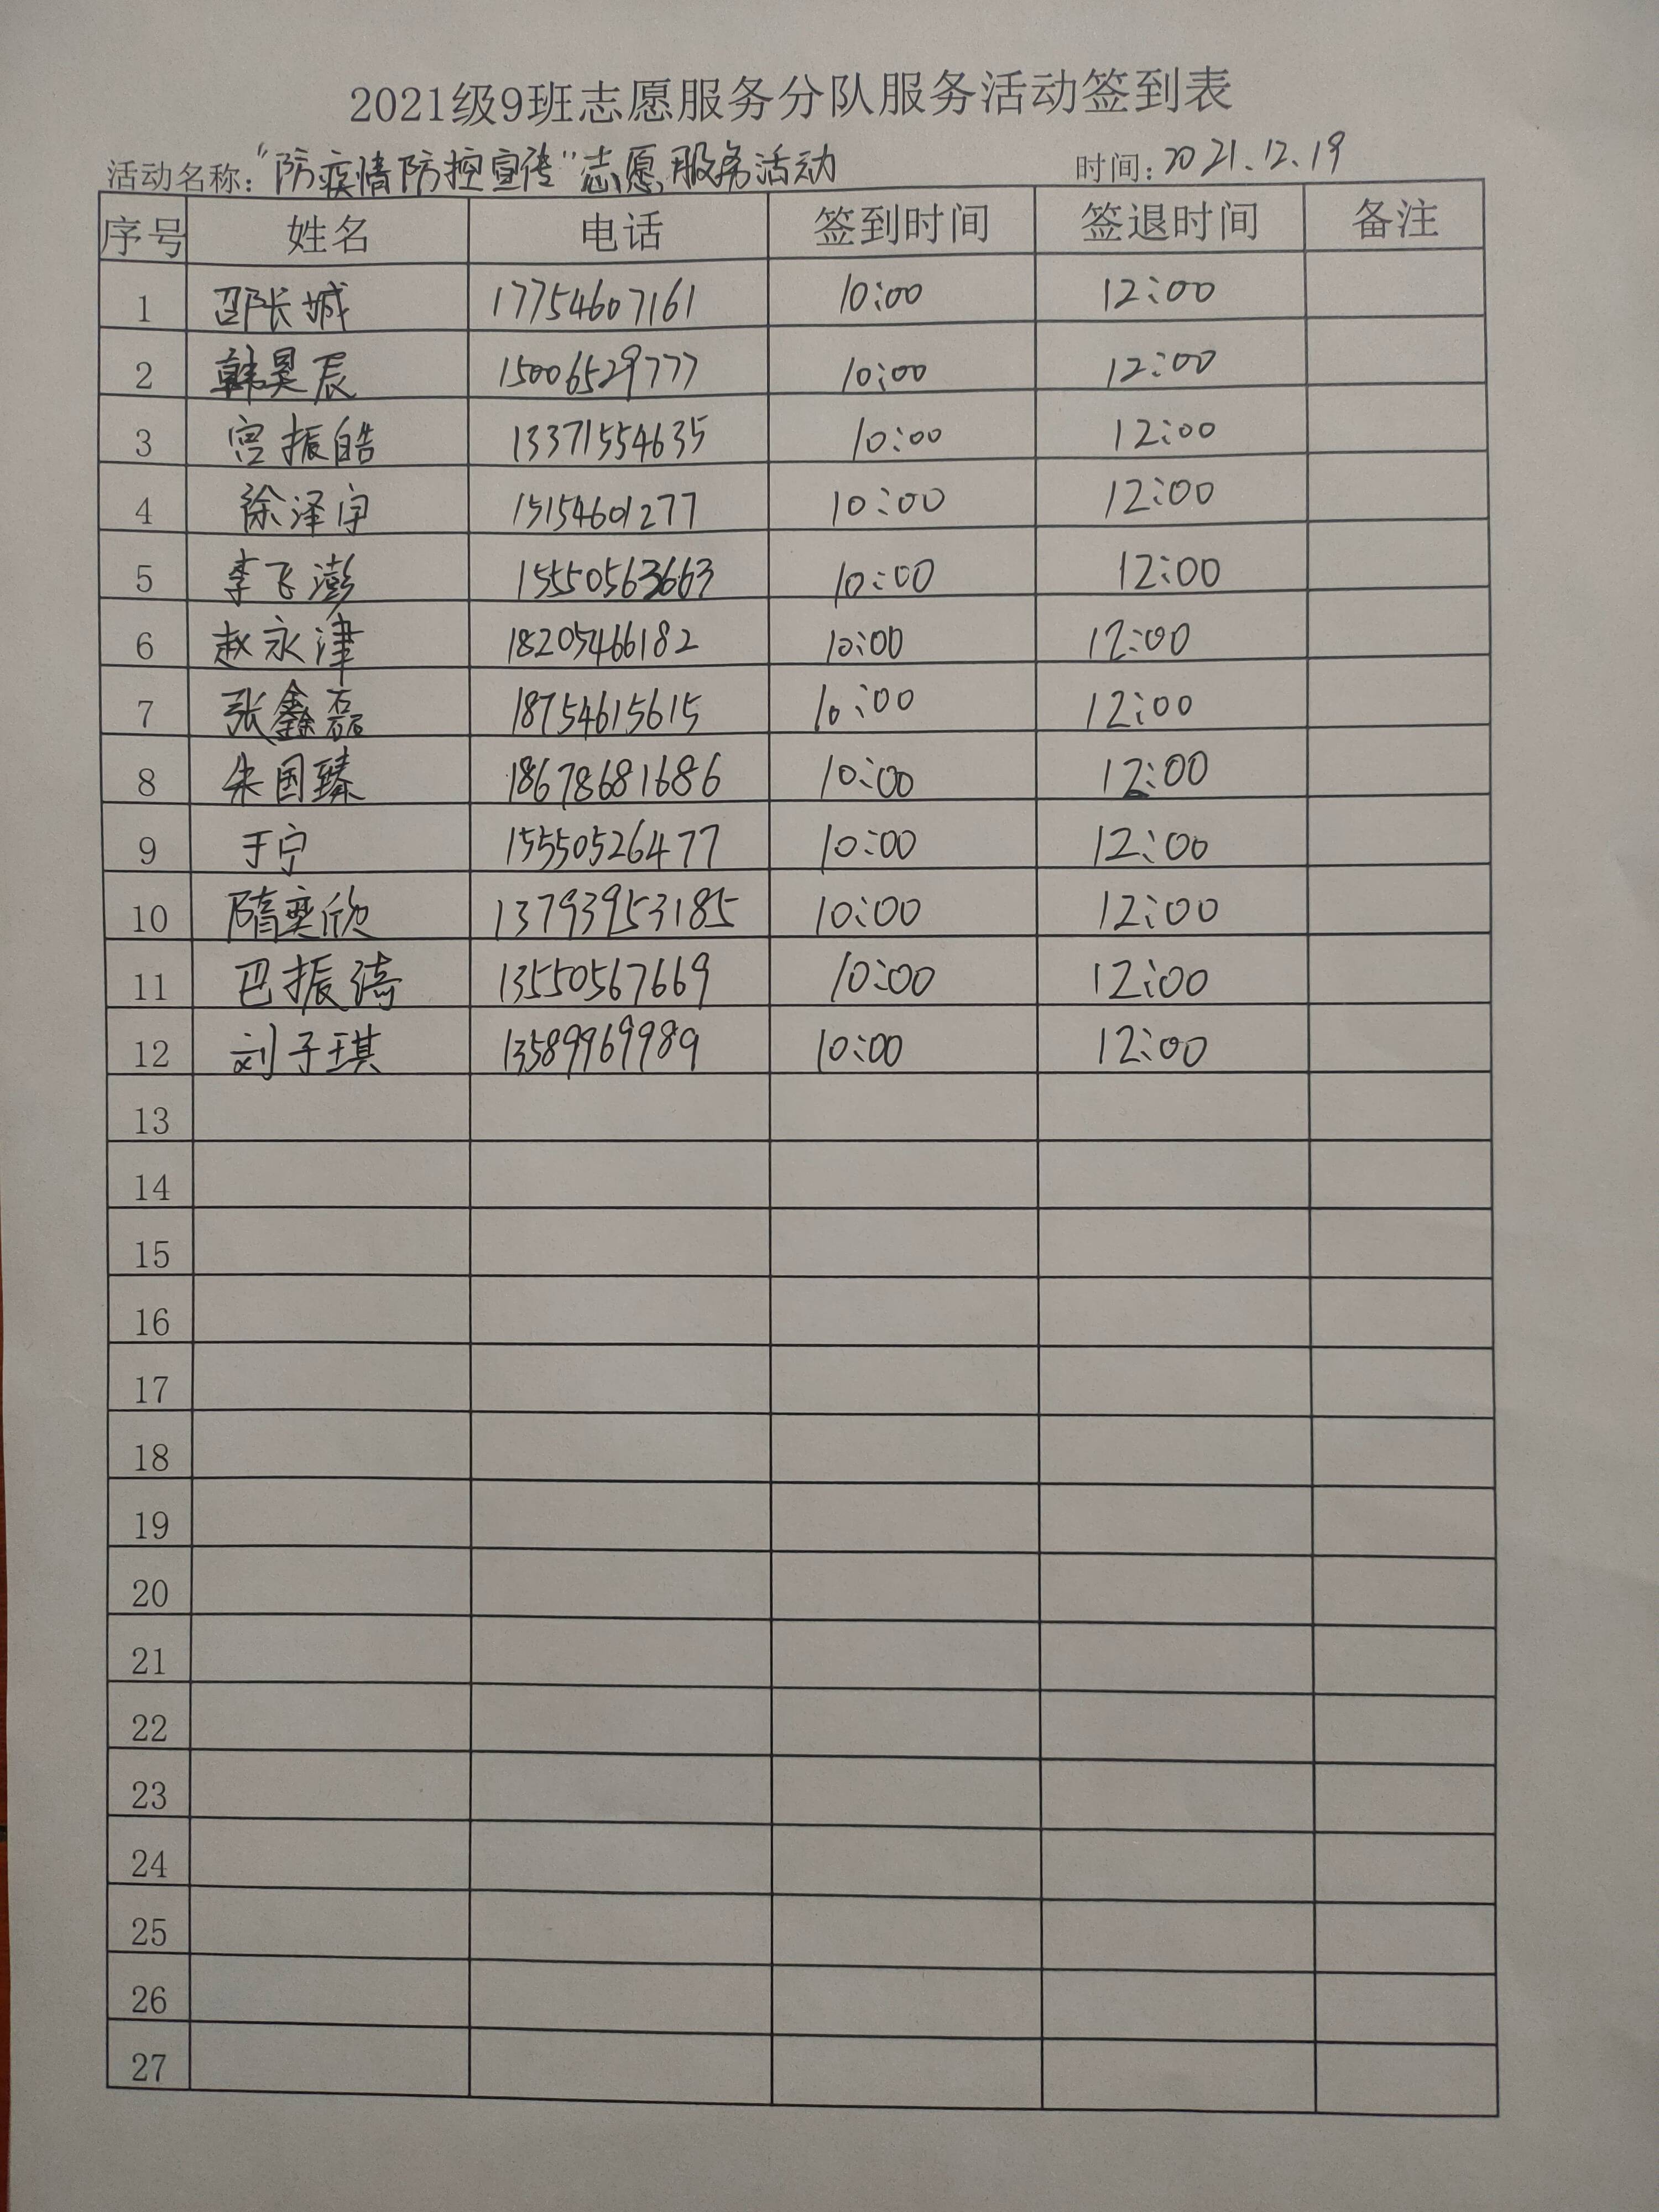 2021级9班志愿服务分队服务活动签到表
活动名称：“防疫情防控宣传”志愿服务活动 时间：2021.12.19
序号 姓名 电话 签到时间 签退时间 备注
1 邵长城 17754607161 10:00 12:00
2 韩昊辰 15006529777 10:00 12:00
3 宫振皓 13371554635 10:00 12:00
4 徐泽宇 15154601277 10:00 12:00
5 李飞澎 15550563663 10:00 12:00
6 赵永津 18205466182 10:00 12:00
7 张鑫磊 18754615615 10:00 12:00
8 朱国臻 18678681686 10:00 12:00
9 于宁 15550526477 10:00 12:00
10 隋奕欣 13793953185 10:00 12:00
11 巴振 13550567669 10:00 12:00
12 刘子琪 13589969989 10:00 12:00
13
14
15
16
17
18
19
20
21
22
23
24
25
26
27